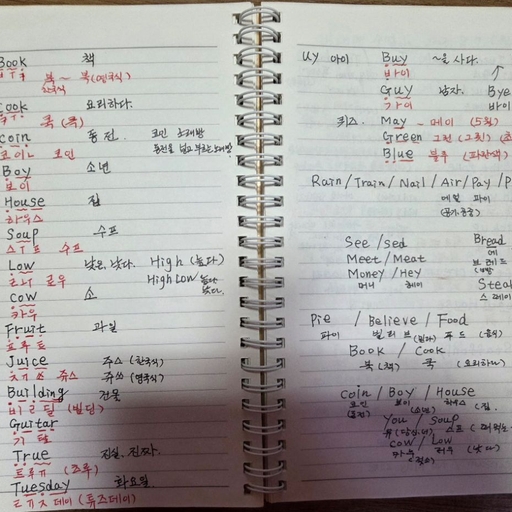 Book 책
북 ~ 북(영국식)
한국식
Cook 요리하다.
쿡 (쿡)
coin 동전 코인 노래방
코이ㄴ 코인 동전을 넣고 부르는 노래방
Boy 소년
보이
House 집
하우스
Soup 수프
수프
Low 낮은, 낮다. High (높다)
로우 High Low 높다 낮다.
cow 소
카우
Fruit 과일
프루트
Juice 주스 (한국식)
쥬스 쥬쓰 (영국식)
Building 건물
비ㄹ딩 (빌딩)
Guitar
기타
True 진실, 진짜.
트루 (츄루)
Tuesday 화요일
ㅌㅠㅈ데이 (튜즈데이)
uy 아이 Buy ~을 사다.
바이
Guy 남자. Bye
가이 바이
퀴즈. May - 메이 (5월)
Green 그린
Blue 블루 (파란색)
Rain / Train / Nail / Air / Pay /
See / sed Bread
Meet / Meat 브레드
Money / Hey (빵)
머니 헤이 Steak
스테이
Pie / Believe / Food
파이 빌리브 (믿다) 푸드 (음식)
Book / Cook
북 (책) 쿡 (요리하다)
coin / Boy / House
코인 보이 하우스 (집
(동전) (소년)
You / Soup
유 (당신, 너) 스프
Cow / Low
카우 로우 (낮다)